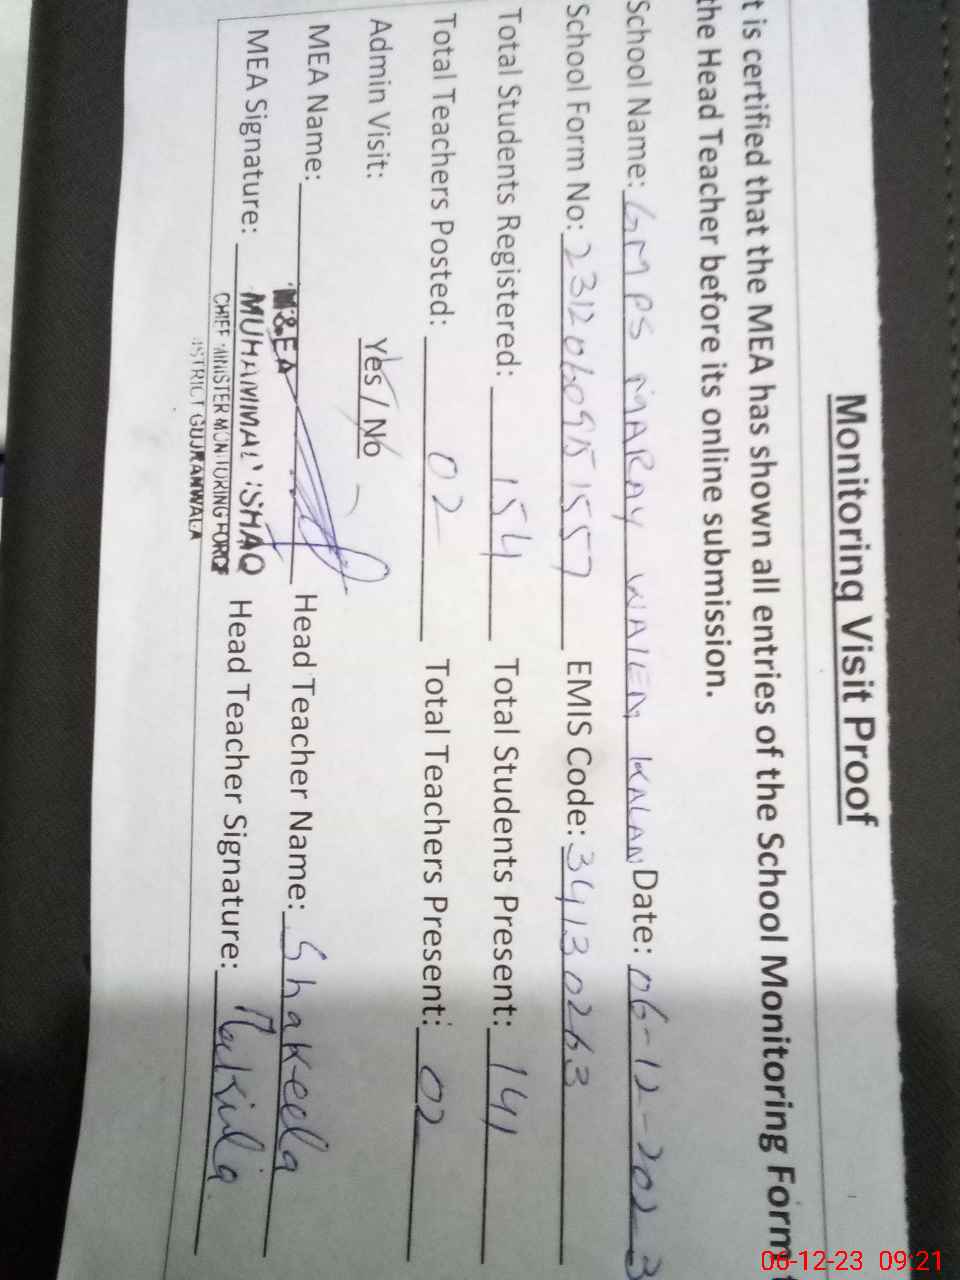 Monitoring Visit Proof
t is certified that the MEA has shown all entries of the School Monitoring Form t
the Head Teacher before its online submission.
School Name: GMPS MARAY WALEN KALAN Date: 06-12-2023
School Form No: 231206095157 EMIS Code: 34130263
Total Students Registered: 154 Total Students Present: 141
Total Teachers Posted: 02 Total Teachers Present: 02
Admin Visit: Yes / No
MEA Name: M&EA Head Teacher Name: Shakeela
MEA Signature: MUHAMMAD ISHAQ Head Teacher Signature:
CHIEF MINISTER MONITORING FORCE
ISTRICT GUJRANWALA
06-12-23 09:21